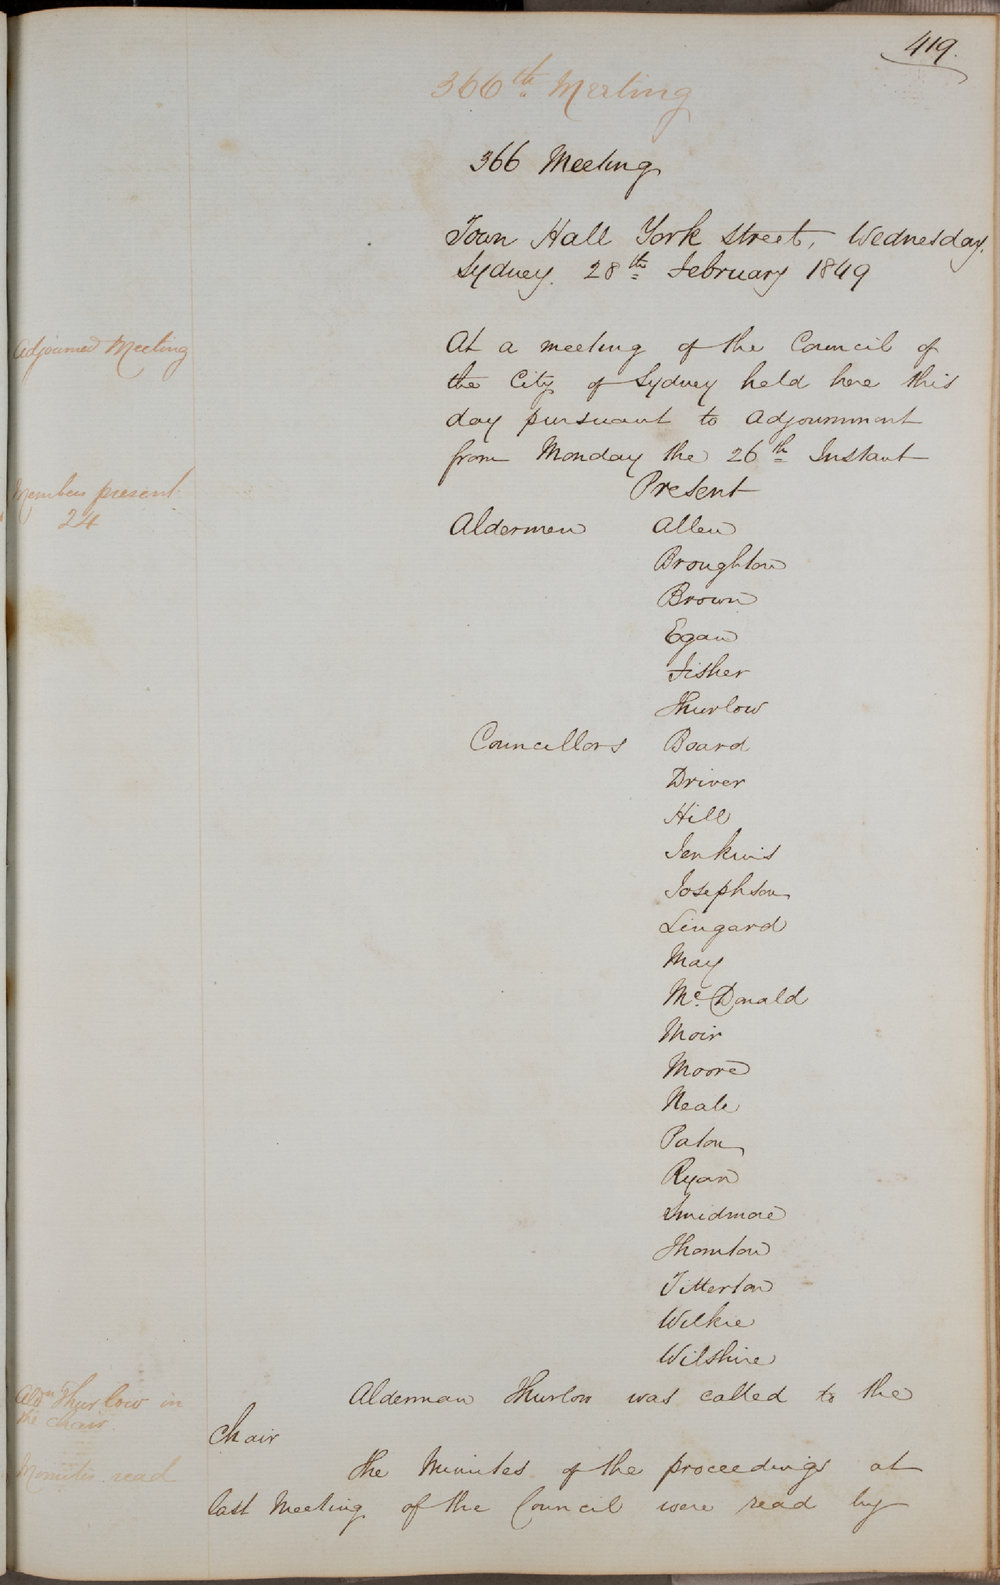 419.
366th Meeting
366 Meeting
Town Hall York Street, Wednesday,
Sydney. 28th February 1849
Adjourned Meeting
At a meeting of the Council of
the City of Sydney held here this
day pursuant to adjournment
from Monday the 26th Instant
Members present
24
Present
Aldermen Allen
Broughton
Brown
Egan
Fisher
Thurlow
Councillors Board
Driver
Hill
Jenkins
Josephson
Lingard
May
Mc. Donald
Moir
Moore
Neale
Paton
Ryan
Smidmore
Thornton
Titterton
Wilkie
Wilshire
Aldn Thurlow in
the chair.
Alderman Thurlow was called to the
Chair
Minutes read
The Minutes of the proceedings at
last Meeting of the Council were read by